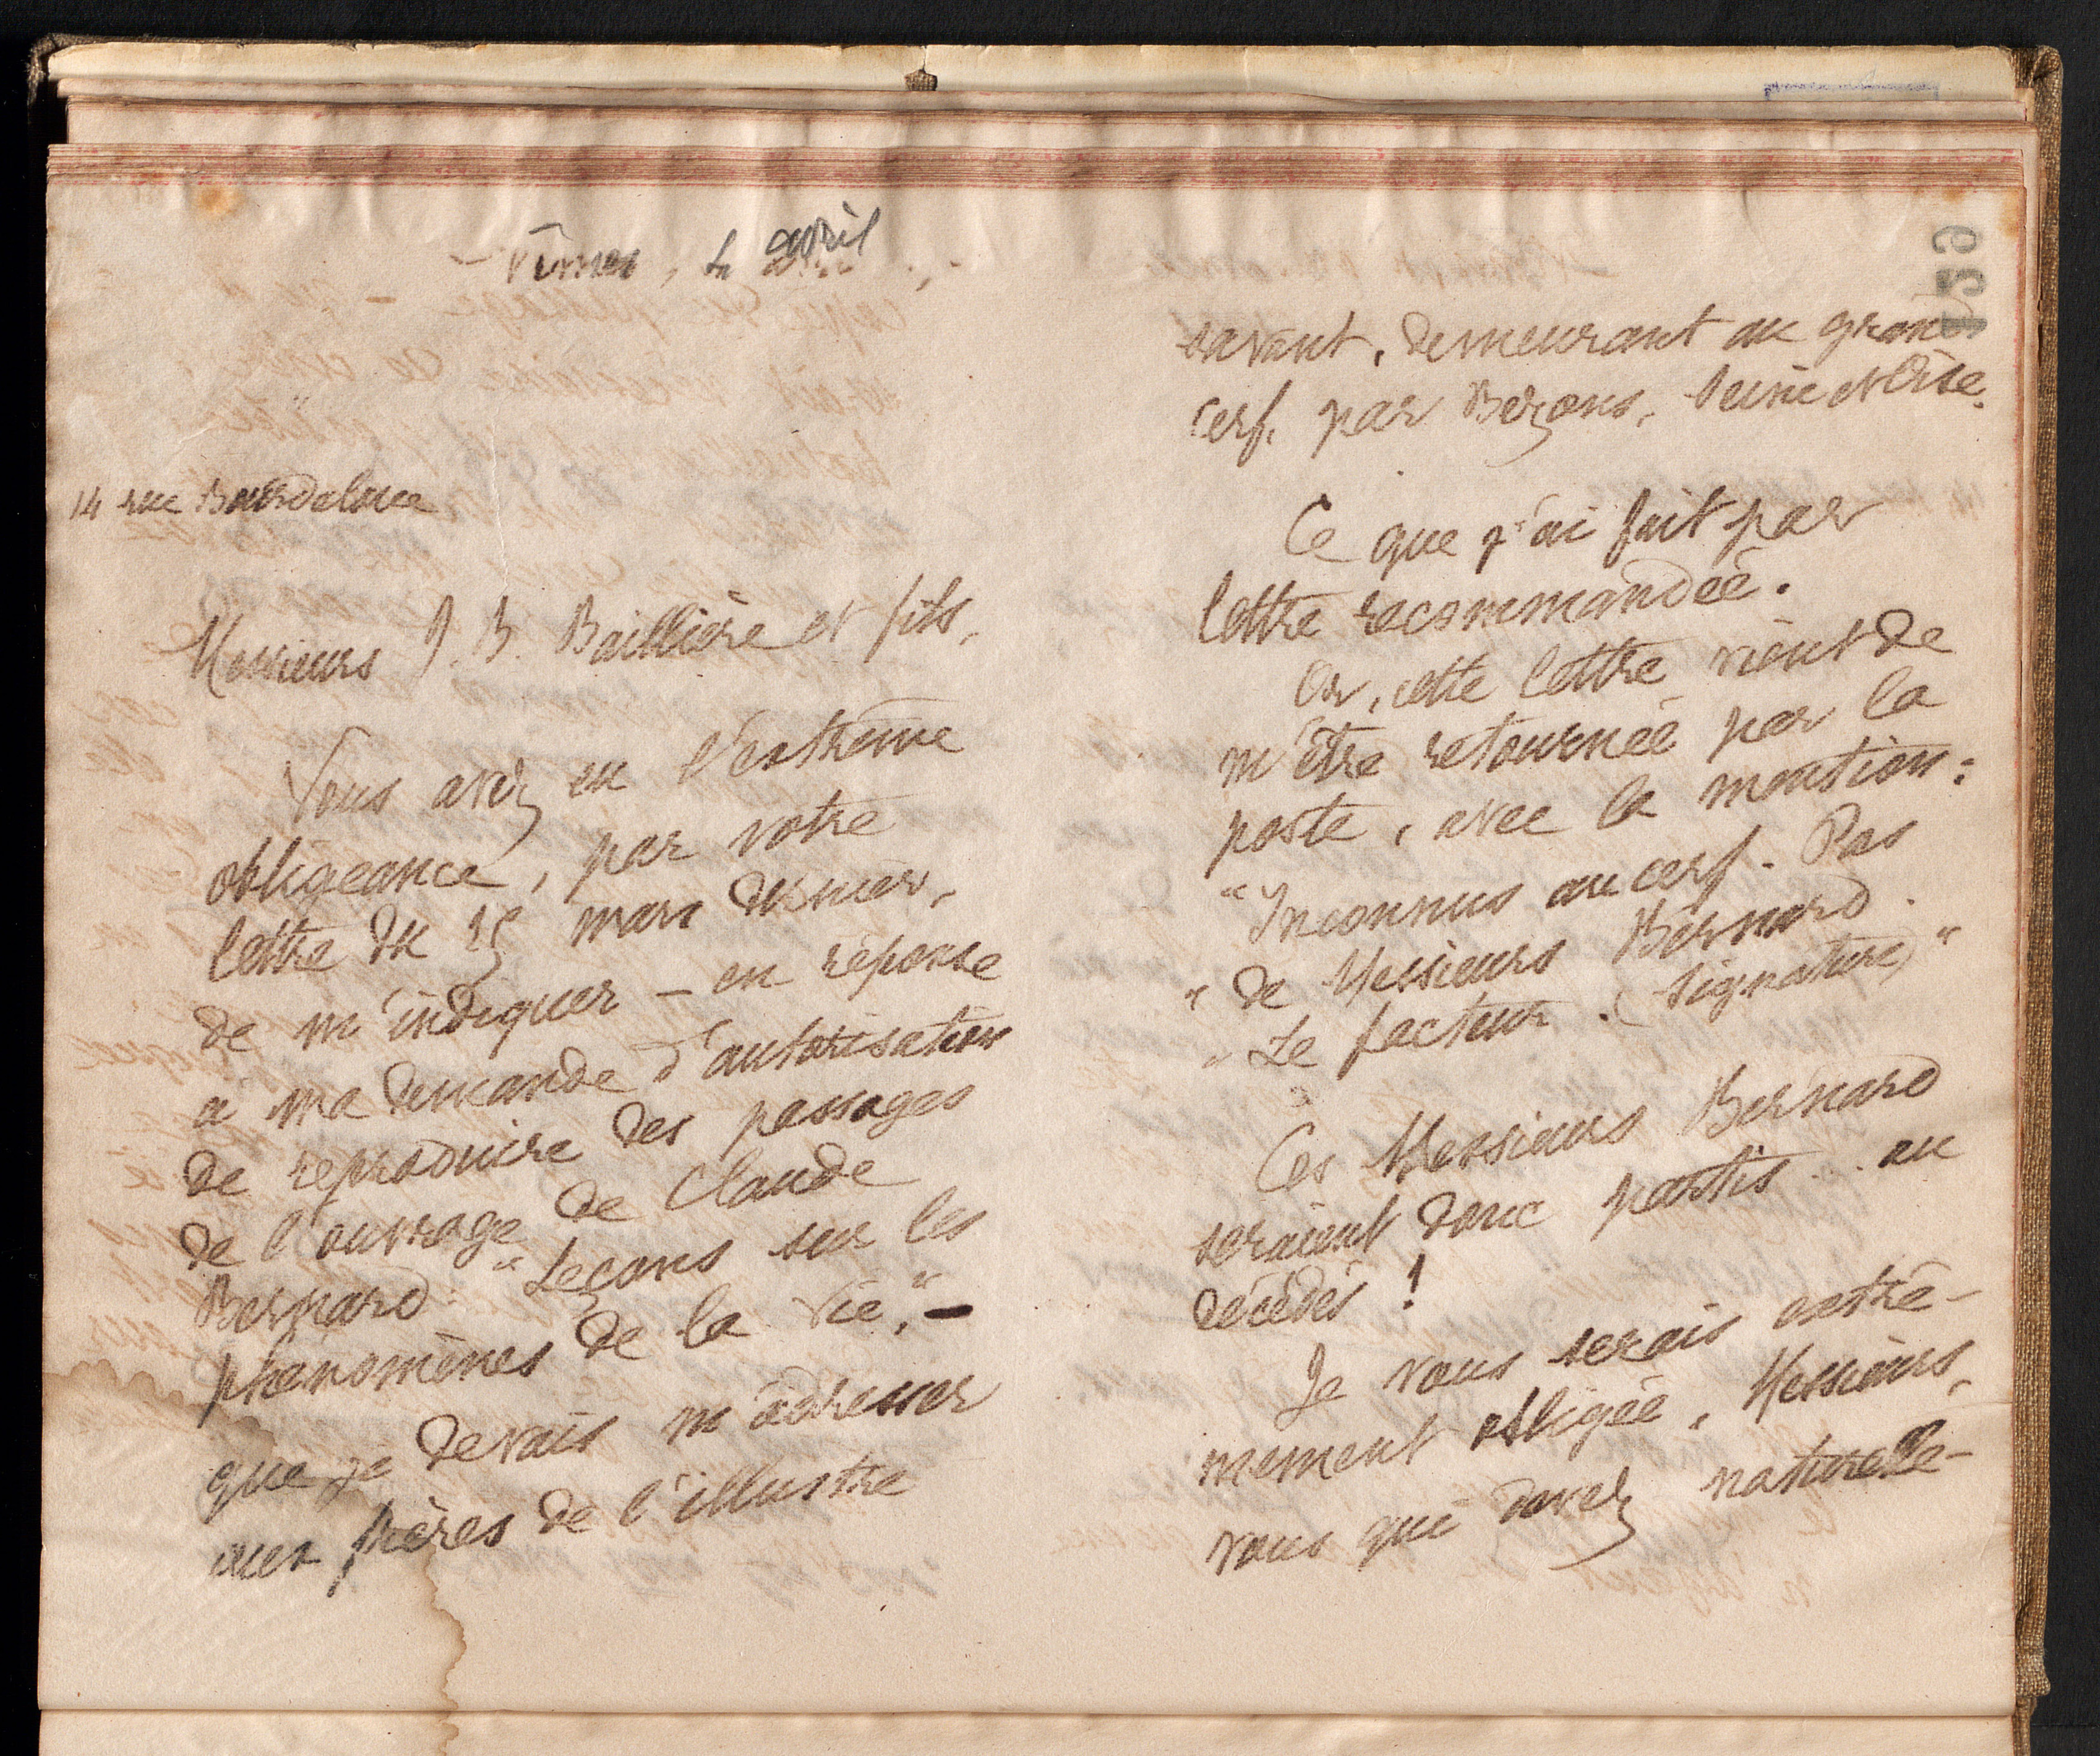 Nîmes, le avril
14 rue Bourdaloue
Messieurs J. B. Baillière et fils,
Vous avez eu l'extrême
obligeance, par votre
lettre du 25 mars dernier,
de m'indiquer - en réponse
à ma demande d'autorisation
de reproduire des passages
de l'ouvrage de Claude
Bernard "Leçons sur les
phénomènes de la vie", -
que je devais m'adresser
aux frères de l'illustre
159
savant, demeurant au grand
cerf, par Bezons, Seine et Oise.
Ce que j'ai fait par
lettre recommandée.
Or, cette lettre vient de
m'être retournée par la
poste, avec la mention :
"Inconnus au cerf. Pas
" de Messieurs Bernard.
" Le facteur. (signature)"
Ces Messieurs Bernard
seraient donc partis... ou
décédés !
Je vous serais extrê-
mement obligée, Messieurs,
vous qui devez naturelle-